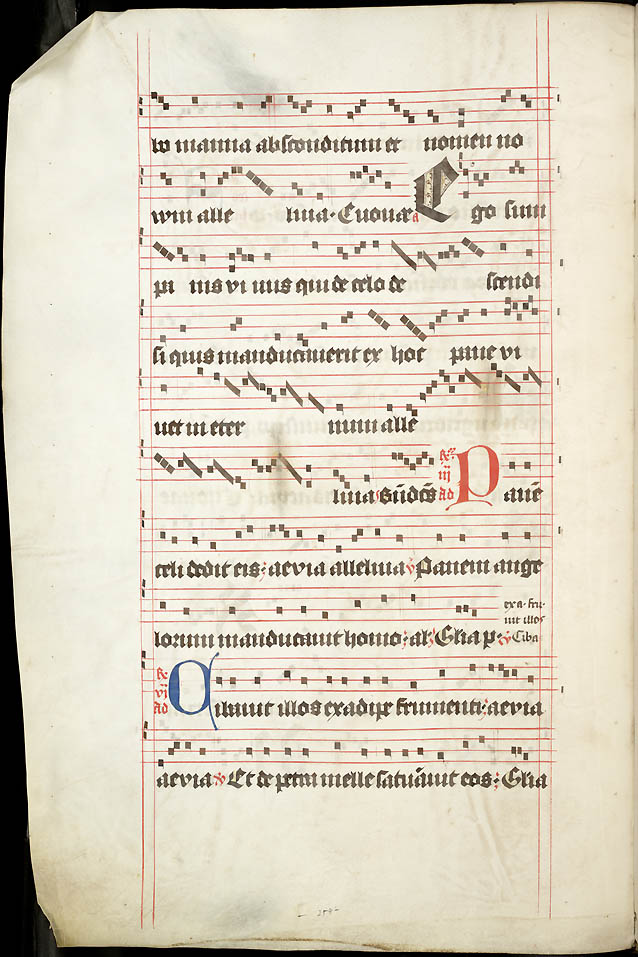 lo manna absconditum et nomen no
vum alle luia. Euouae Ego sum
pa nis vi uus qui de celo de scendi
si quis manducauerit ex hoc pane vi
uet in eter num alle
luia ad Pané
celi dedit eis: aevia alleluia Panem ange
lorum manducauit homo: al: Glia p: Ciba
exa. fru.
uit illos
ad Cibauit illos ex adipe frumenti: aevia
aevia Et de petra melle saturauit eos: Glia